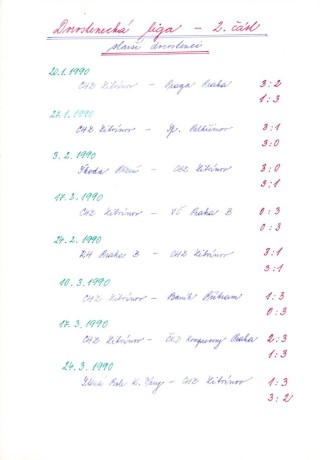 Dorostenecká liga - 2. část
starší dorostenci
20.1.1990
CHZ Litvínov - Praga Praha 3:2
1:3
27.1.1990
CHZ Litvínov - Sp. 3:1
3:0
3.2.1990
Škoda Plzeň - CHZ Litvínov 3:0
3:1
17.2.1990
CHZ Litvínov - VŠ Praha B 0:3
0:3
24.2.1990
RH Praha B - CHZ Litvínov 3:1
3:1
10.3.1990
CHZ Litvínov - Baník Příbram 1:3
0:3
17.3.1990
CHZ Litvínov - ČKD Kompresory Praha 2:3
1:3
24.3.1990
K. Vary - CHZ Litvínov 1:3
3:2